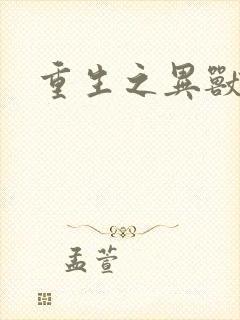 重生之異獸
孟萱